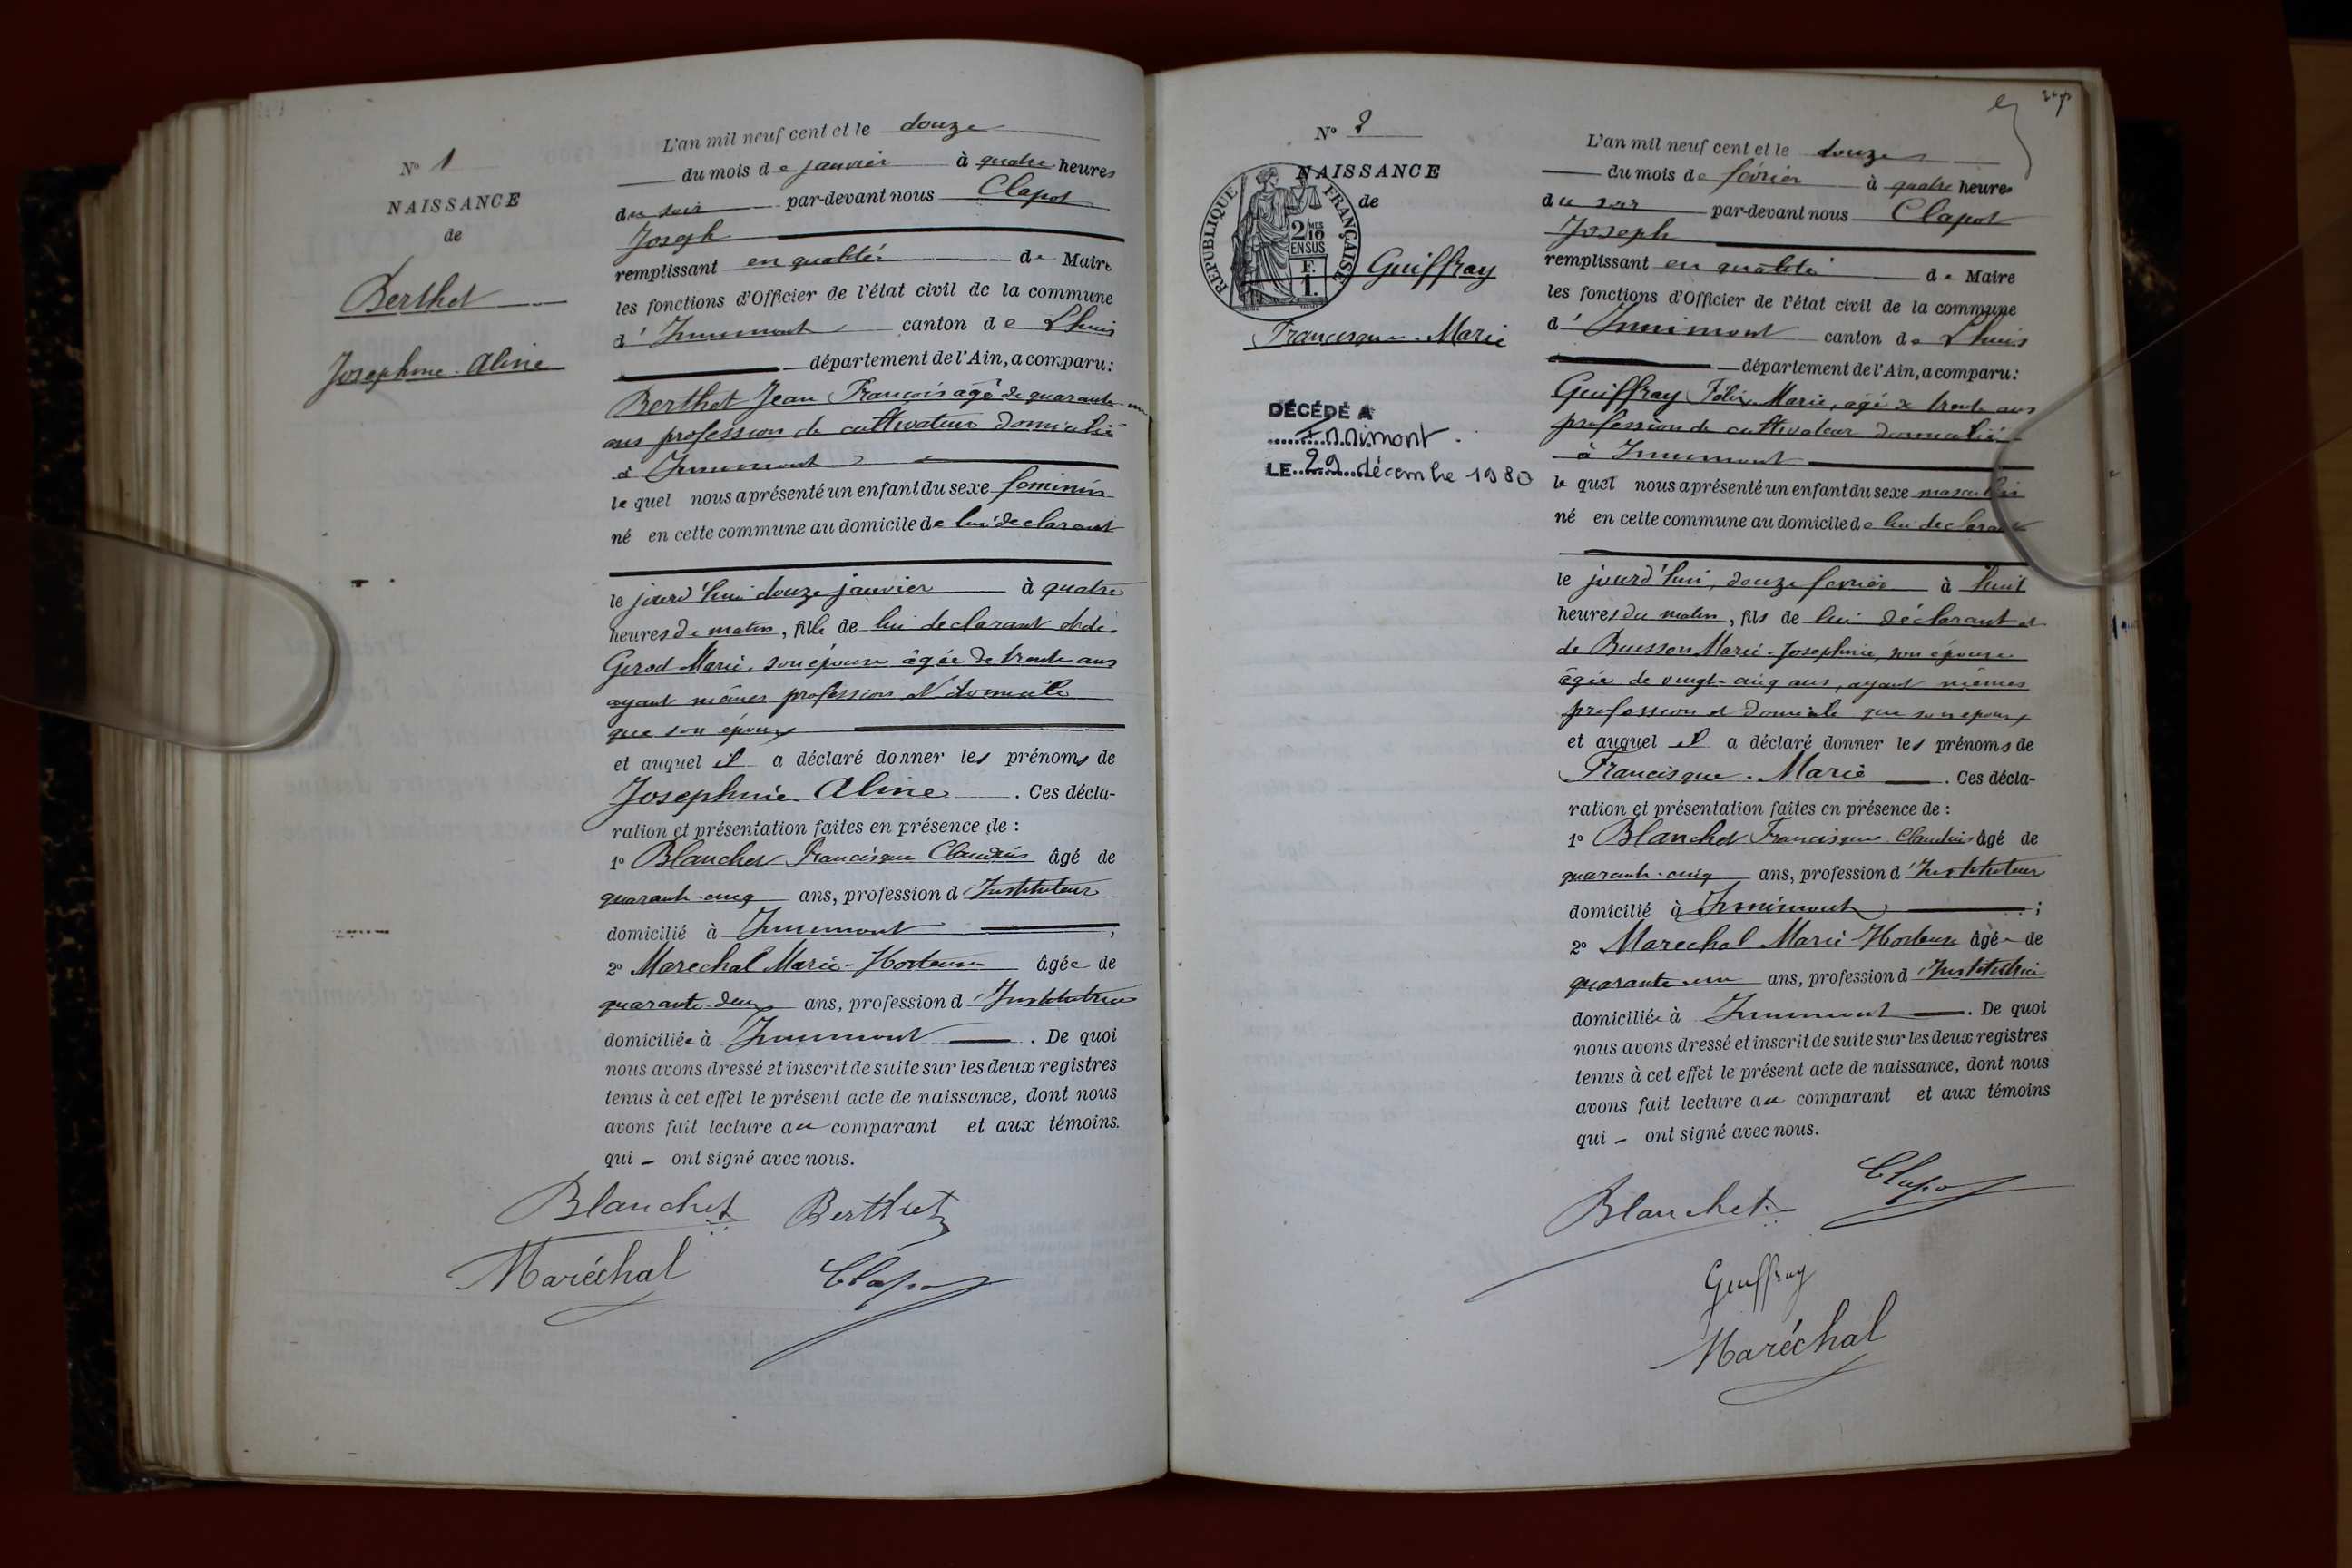 N° 1
NAISSANCE
de
Berthet
Josephine-Aline
L'an mil neuf cent et le douze
du mois de janvier à quatre heures
du soir par-devant nous Clapot
Joseph
remplissant en qualité de Maire
les fonctions d'Officier de l'état civil de la commune
d'Innimont canton de Lhuis
département de l'Ain, a comparu:
Berthet Jean François âgé de quarante-un
ans profession de cultivateur domicilié
à Innimont
le quel nous a présenté un enfant du sexe feminin
né en cette commune au domicile de lui declarant
le jourd'hui douze janvier à quatre
heures du matin, fille de lui declarant et de
Gerod Marie, son épouse âgée de trente ans
ayant mêmes profession et domicile
que son époux
et auquel il a déclaré donner les prénoms de
Josephine-Aline. Ces décla-
ration et présentation faites en présence de :
1° Blanchet Francisque Claudius âgé de
quarante-cinq ans, profession d'Instituteur
domicilié à Innimont ;
2° Marechal Marie-Hortense âgée de
quarante-deux ans, profession d'Institutrice
domiciliée à Innimont. De quoi
nous avons dressé et inscrit de suite sur les deux registres
tenus à cet effet le présent acte de naissance, dont nous
avons fait lecture au comparant et aux témoins.
qui - ont signé avec nous.
Blanchet Berthet
Maréchal Clapot
N° 2
NAISSANCE
de
REPUBLIQUE FRANÇAISE
2 MES
10
EN SUS
F.
1.
Guiffray
Francisque-Marie
DÉCÉDÉ A
Innimont.
LE 29 décembre 1980
L'an mil neuf cent et le douze
du mois de février à quatre heures
du soir par-devant nous Clapot
Joseph
remplissant en qualité de Maire
les fonctions d'Officier de l'état civil de la commune
d'Innimont canton de Lhuis
département de l'Ain, a comparu:
Guiffray Félix Marie, âgé de trente ans
profession de cultivateur domicilié
à Innimont
le quel nous a présenté un enfant du sexe masculin
né en cette commune au domicile de lui declarant
le jourd'hui, douze fevrier à huit
heures du matin, fils de lui déclarant et
de Buisson Marie-Josephine, son épouse
âgée de vingt-cinq ans, ayant mêmes
profession et domicile que son epoux
et auquel il a déclaré donner les prénoms de
Francisque-Marie. Ces décla-
ration et présentation faites en présence de :
1° Blanchet Francisque Claudius âgé de
quarante-cinq ans, profession d'Instituteur
domicilié à Innimont ;
2° Marechal Marie-Hortense âgée de
quarante-un ans, profession d'Institutrice
domiciliée à Innimont. De quoi
nous avons dressé et inscrit de suite sur les deux registres
tenus à cet effet le présent acte de naissance, dont nous
avons fait lecture au comparant et aux témoins
qui - ont signé avec nous.
Blanchet Clapot
Guiffray
Maréchal